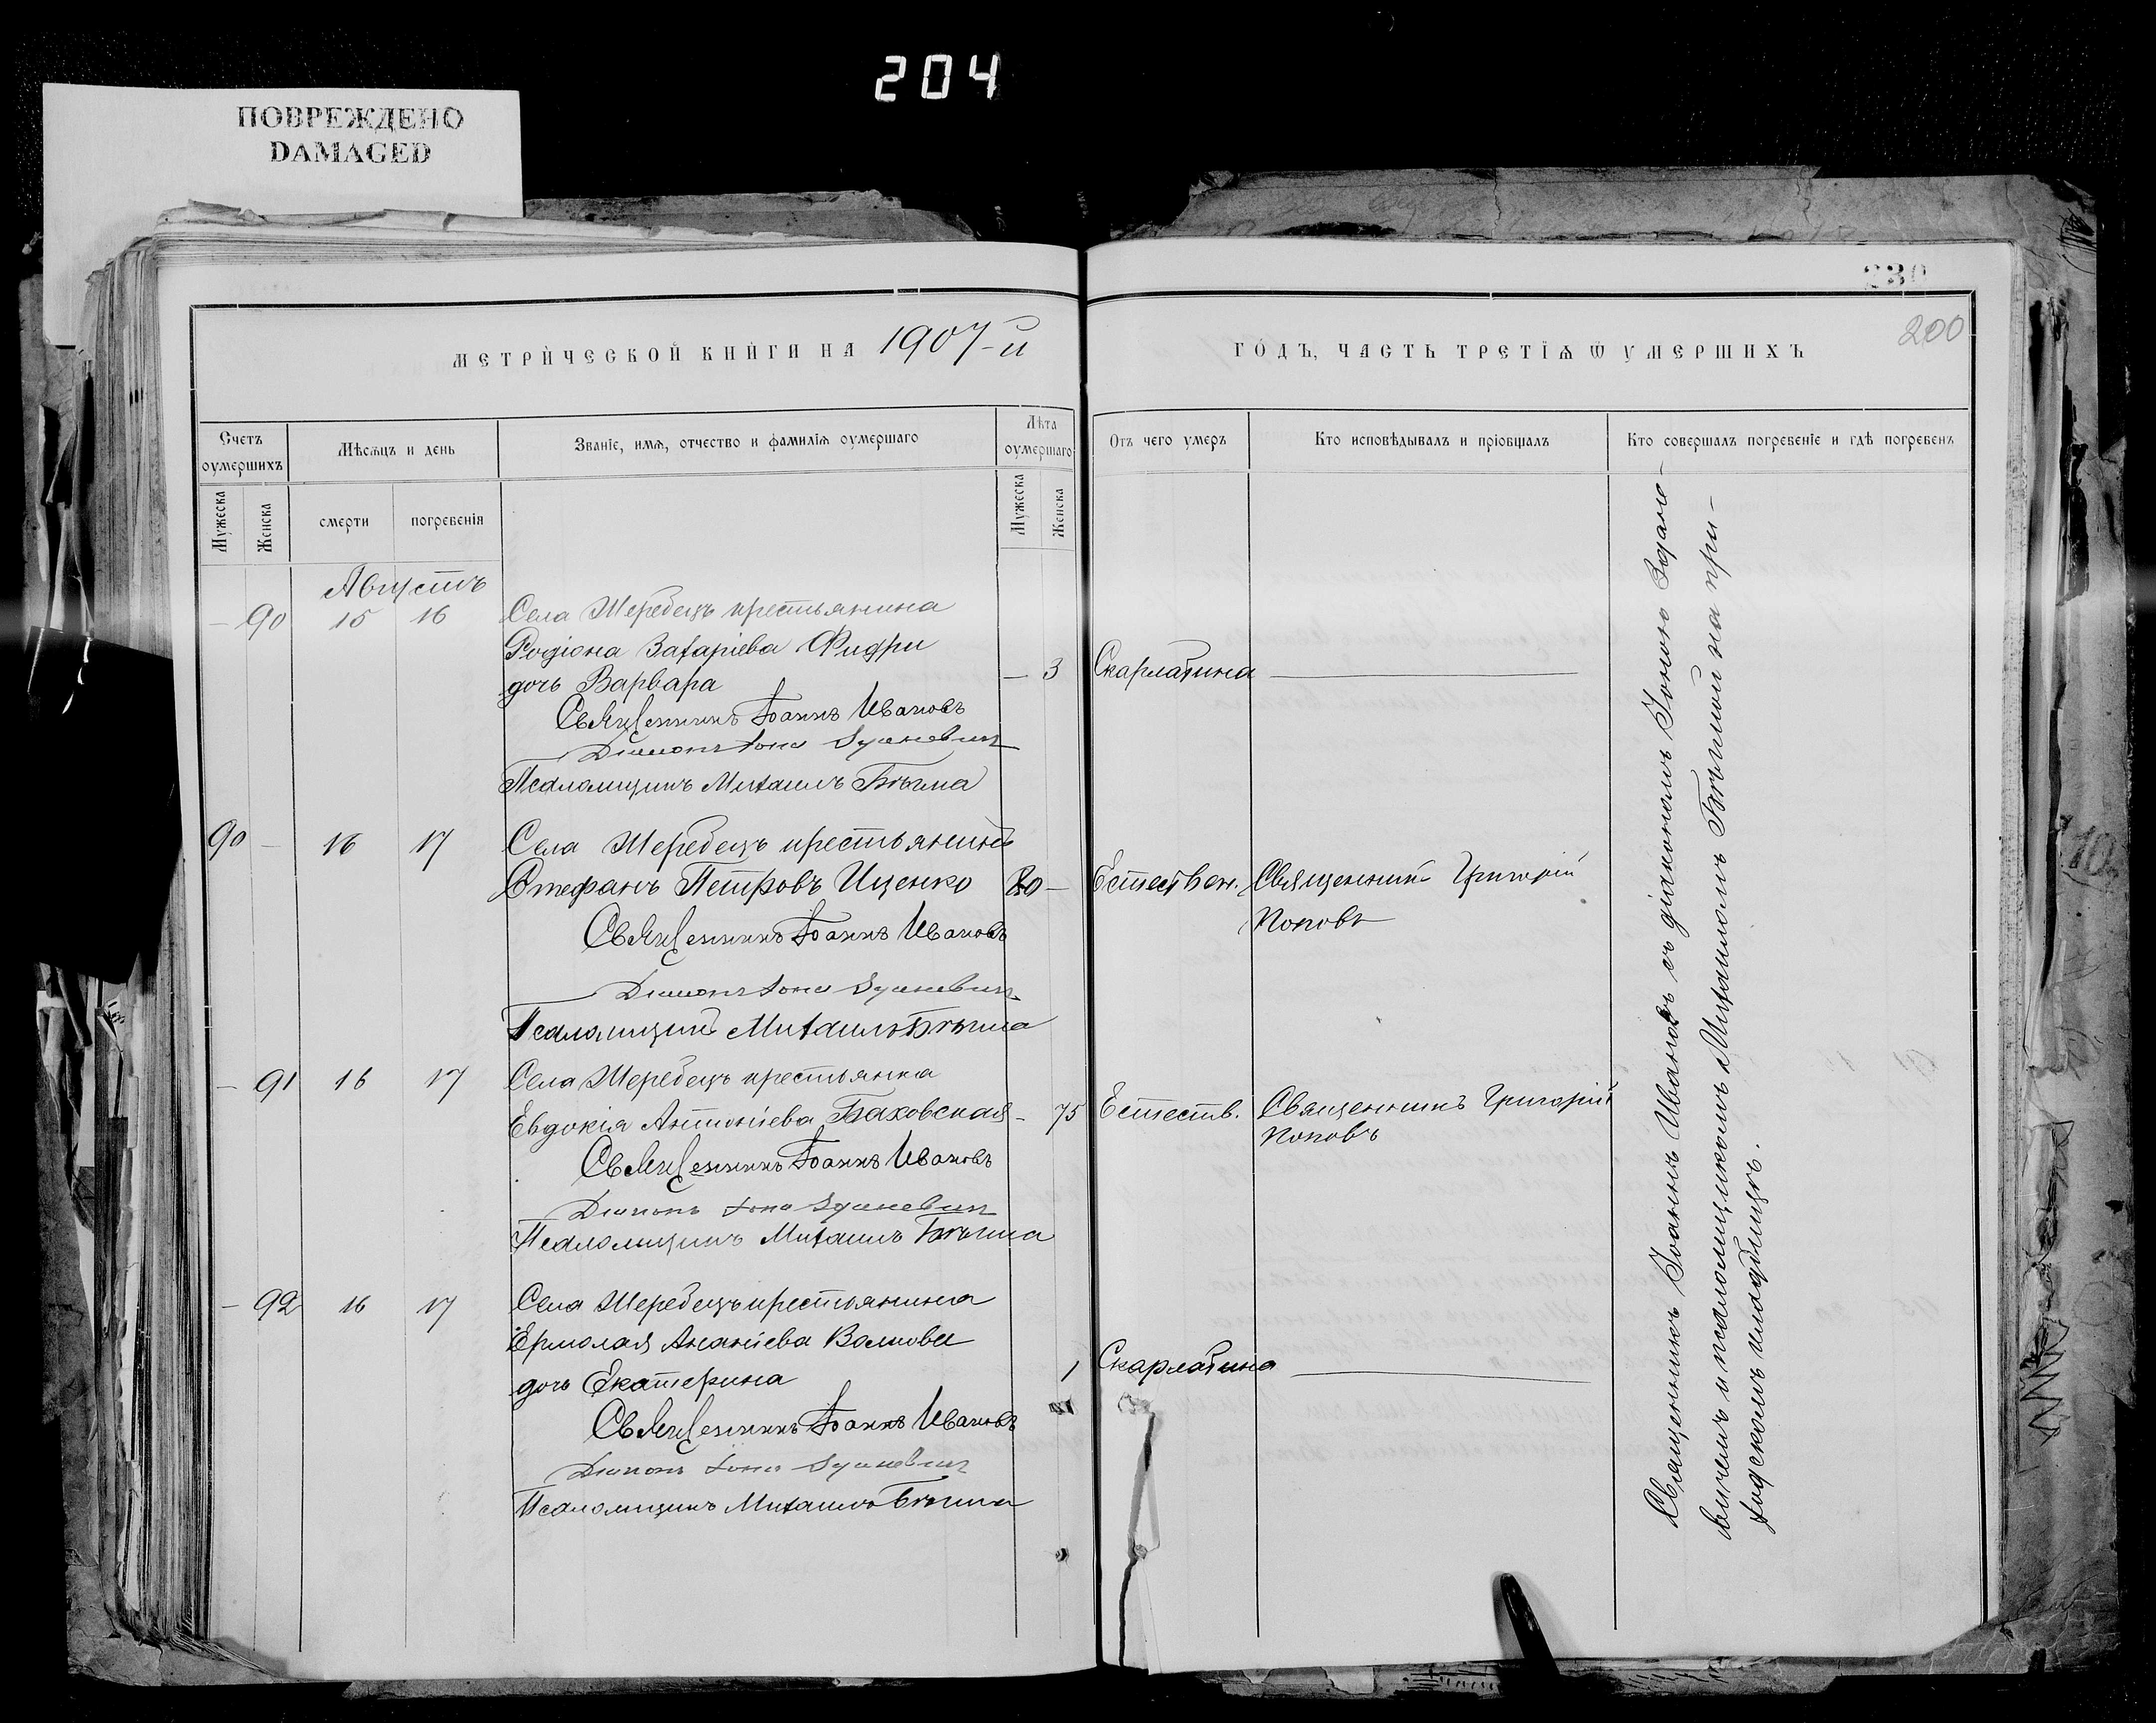 204
ПОВРЕЖДЕНО
DAMAGED
230
200
МЕТРИЧЕСКОЙ КНИГИ НА 1907-й
ГОДЪ, ЧАСТЬ ТРЕТІѦ Ѿ УМЕРШИХЪ
Счетъ оумершихъ
Мѣсѧцъ и день
Званіе, имѧ, отчество и фамиліѧ оумершаго
Лѣта оумершаго
Отъ чего умеръ
Кто исповѣдывалъ и пріобщалъ
Кто совершалъ погребеніе и гдѣ погребенъ
Мужеска
Женска
смерти
погребенія
Мужеска
Женска
Августъ
— 90 15 16 Села Жеребецъ крестьянина
Родіона Захаріева Фидри
дочь Варвара — 3 Скарлатина —
Священникъ Іоаннъ Ивановъ
Діаконъ Іона
Псаломщикъ Михаилъ Бѣгма
90 — 16 17 Села Жеребецъ крестьянинъ
Стефанъ Петровъ Иценко 80 — Естествен. Священникъ Григорій
Поповъ
Священникъ Іоаннъ Ивановъ
Діаконъ Іона
Псаломщикъ Михаилъ Бѣгма
— 91 16 17 Села Жеребецъ крестьянка
Евдокія Антоніева Баховская — 75 Естеств. Священникъ Григорій
Поповъ
Священникъ Іоаннъ Ивановъ
Діаконъ Іона
Псаломщикъ Михаилъ Бѣгма
— 92 16 17 Села Жеребецъ крестьянина
Ермолая Ананіева Волкова
дочь Екатерина 1 Скарлатина —
Священникъ Іоаннъ Ивановъ
Діаконъ Іона
Псаломщикъ Михаилъ Бѣгма
Священникъ Іоаннъ Ивановъ съ діакономъ Іоною
вичемъ и псаломщикомъ Михаиломъ Бѣгмой на при-
ходскомъ кладбищѣ.